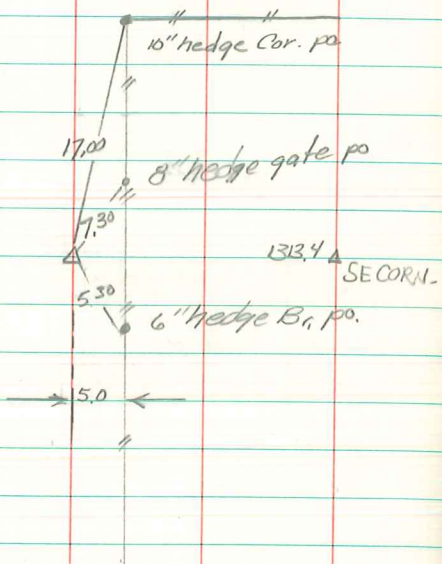 10" hedge Cor. po
17.00
8" hedge gate po
7.30
1313.4
SE CORN.
5.30
6" hedge Br. po.
5.0